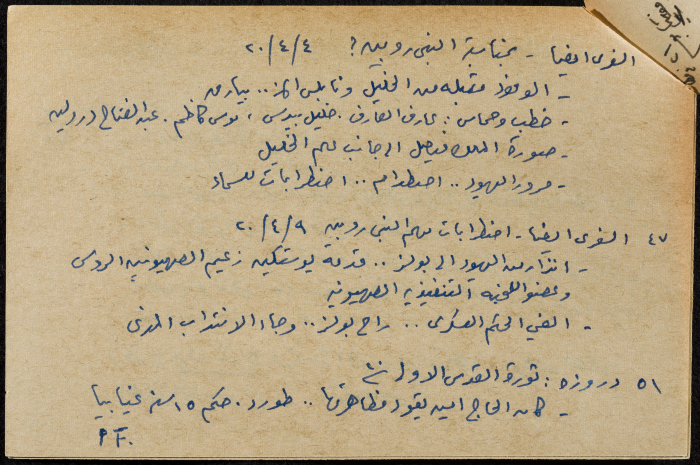 الغرى ايضا - بمناسبة النبى روبين ؟ ٤/٤/٢٠
- الوفود مقبله من الخليل ونابلس الخ .. بيارق
- خطب وحماس : عارف العارف . خليل بيدس ، موسى كاظم . عبد الفتاح درويش
- صورة الملك فيصل الى جانب علم الخليل
- مرور اليهود .. اصطدام .. اضطرابات للمساء
٤٧ الغرى ايضا - اضطرابات موسم النبى روبين ٩/٤/٢٠
- انذار من اليهود الى بولز .. قدمه يوستكين زعيم الصهيونيه الروسى
وعضو اللجنه التنفيذيه الصهيونيه
- الغي الحكم العسكرى .. راح بولز .. وجاء الانتداب المدنى
٥١ دروزه : ثورة القدس الاولى
- كان الحاج امين يقود مظاهرتها .. طورد . حكم ١٥ سنه غيابيا
P F.